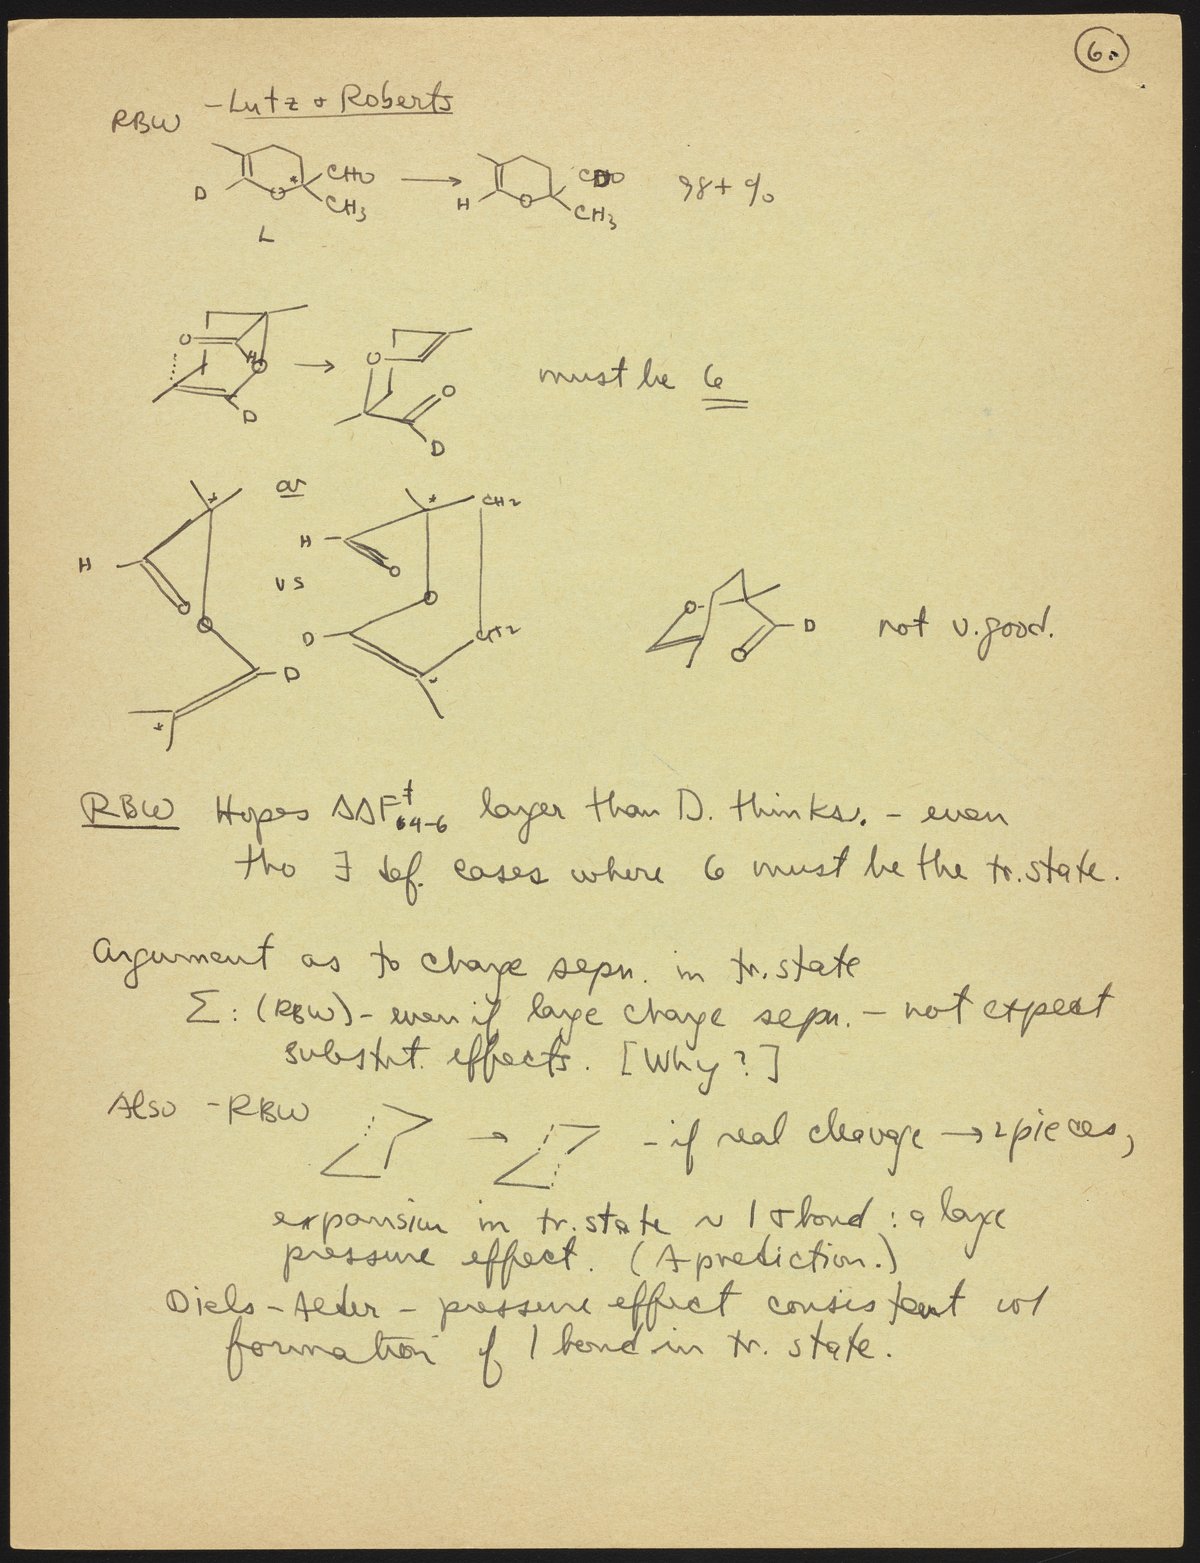 6.
RBW - Lutz & Roberts
D O * CHO CH3 → H O CDO CH3 98+ %
L
O H O D → O O D must be 6
* or * CH2
H O O D * vs H O O D CH2
O O D not v. good.
RBW Hopes ΔΔF‡ 64-6 larger than D. thinks. - even
tho ∃ def. cases where 6 must be the tr. state.
Argument as to charge sepn. in tr. state
Σ: (RBW) - even if large charge sepn. - not expect
substit. effects. [Why?]
Also - RBW → - if real cleavage → 2 pieces,
expansion in tr. state ~ 1 σ bond : a large
pressure effect. (A prediction.)
Diels-Alder - pressure effect consistent w/
formation of 1 bond in tr. state.